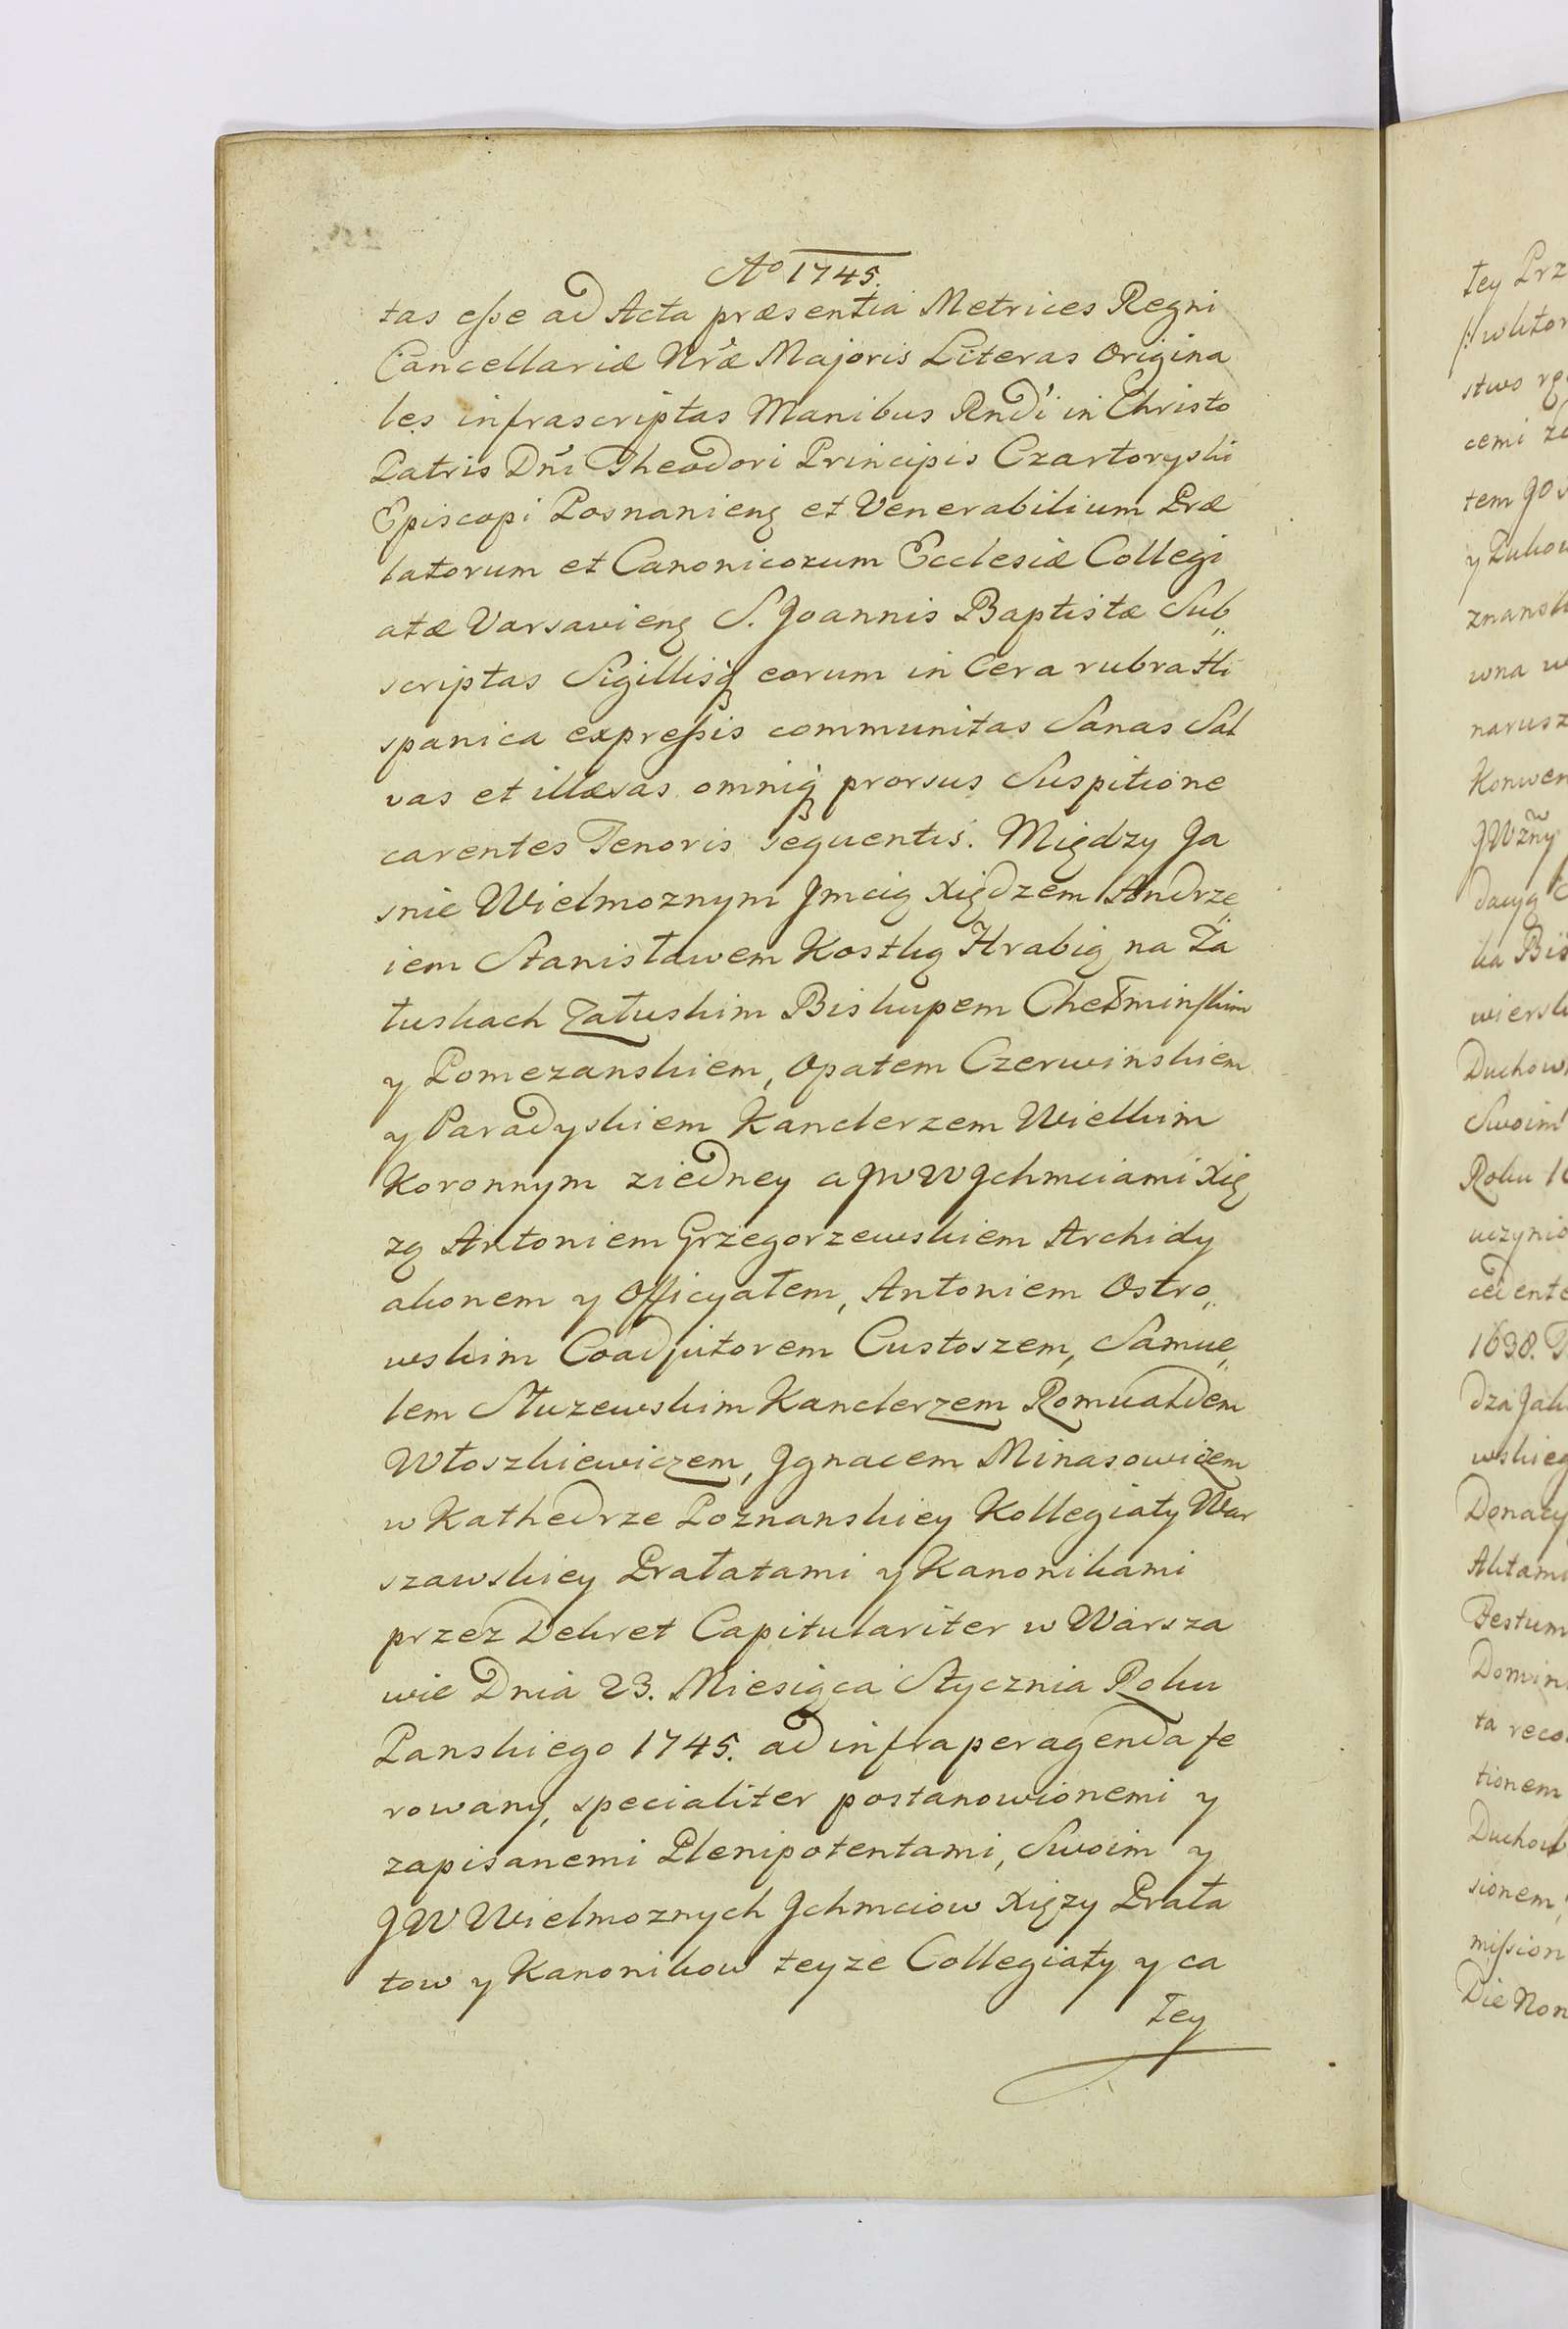 Aº 1745.
tas eſse ad Acta præsentia Metrices Regni
Cancellariæ Nr̃æ Majoris Literas Origina
les infrascriptas Manibus Rndi in Christo
Patris Dni Theodori Principis Czartoryski
Episcopi Posnanienẞ et Venerabilium Præ
latorum et Canonicorum Ecclesiæ Collegi
atæ Varsavienẞ S. Joannis Baptistæ Sub„
scriptas Sigillisq́ eorum in Cera rubra Hi
spanica expreſsis communitas Sanas Sal
vas et illæsas omniq́ prorsus Suspitione
carentes Tenoris sequentis. Między Ja
snie Wielmoznym Jmcią Xiędzem Andrze„
iem Stanisławem Kostką Hrabią na Za
łuskach Załuskim Biskupem Chełminskim
y Pomezanskiem, Opatem Czerwinskiem
y Paradyskiem Kanclerzem Wielkim
Koronnym ziedney a JWWJchmciami Xię
zą Antoniem Grzegorzewskiem Archidy
akonem y Officyałem, Antoniem Ostro„
wskim Coadjutorem Custoszem, Samue„
lem Słuzewskim Kanclerzem Romualdem
Włoszkiewiczem, Jgnacem Minasowiczem
w Kathedrze Poznanskiey Kollegiaty War
szawskiey Prałatami y Kanonikami
przez Dekret Capitulariter w Warsza
wie Dnia 23. Miesiąca Stycznia Roku
Panskiego 1745. ad infra peragenda fe
rowany, specialiter postanowionemi y
zapisanemi Plenipotentami, Swoim y
JW Wielmoznych Jchmciow Xięzy Prała
tow y Kanonikow teyze Collegiaty y ca
łey
tey Prz
stwo
cemi
tem
wna
narusz
Konwen
JWzny
wiersk
Duchow
Swoim
Roku 16
uczynio
cedente
1638.
dza Jak
wskieg
Donacy
Aktami
Festum
Domin
ta reco
tionem
Duchow
sionem,
miſsion
Die Non